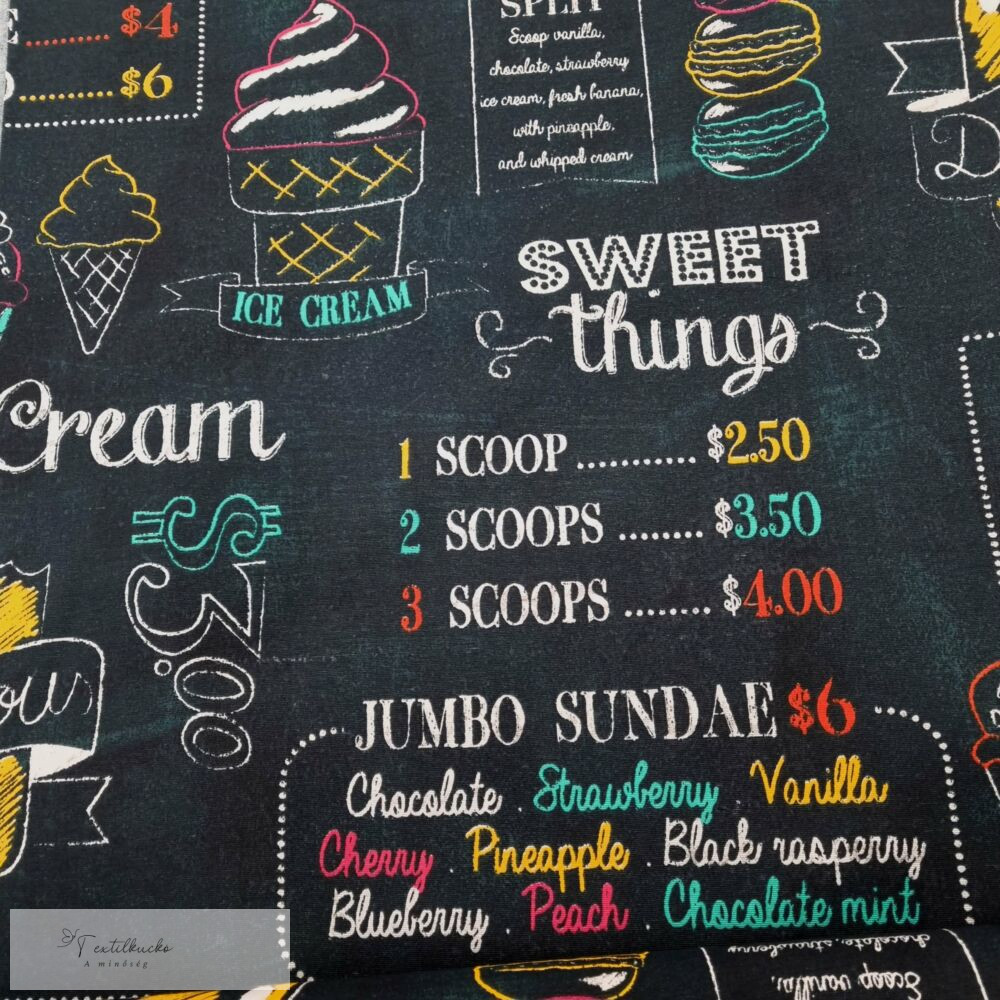 $4
$6
SPLIT
Scoop vanilla,
chocolate, strawberry
ice cream, fresh banana,
with pineapple,
and whipped cream
ICE CREAM
SWEET
things
Cream
1 SCOOP ........... $2.50
2 SCOOPS ........ $3.50
3 SCOOPS ........ $4.00
$3.00
JUMBO SUNDAE $6
Chocolate . Strawberry . Vanilla
Cherry . Pineapple . Black rasperry
Blueberry . Peach . Chocolate mint
chocolate, strawberry
Scoop vanilla,
Textilkucko
A minőség